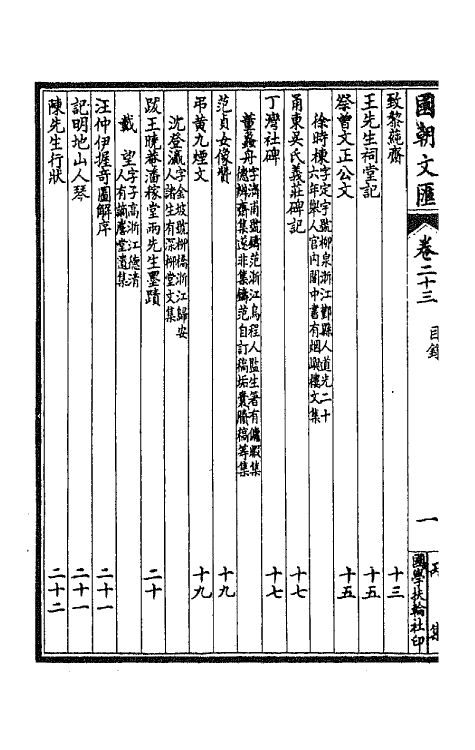 國朝文匯 卷二十三 目錄 一 國學扶輪社印
致黎蒓齋 十三
王先生祠堂記 十五
祭曾文正公文 十五
徐時棟 字定宇號柳泉浙江鄞縣人道光二十
六年舉人官內閣中書有烟嶼樓文集
甬東吳氏義莊碑記 十七
丁灣社碑 十七
董蠡舟 字濟甫號鑄范浙江烏程人監生著有傭暇集
德辨齋集遂非集鑄范自訂稿垢囊賸稿等集
范貞女像贊 十九
弔黃九煙文 十九
沈登瀛 字金坡號柳橋浙江歸安
人諸生有深柳堂文集
跋王曉菴潘稼堂兩先生墨蹟 二十
戴望 字子高浙江德清
人有謫麐堂遺集
汪仲伊握奇圖解序 二十一
記明地山人琴 二十一
陳先生行狀 二十二